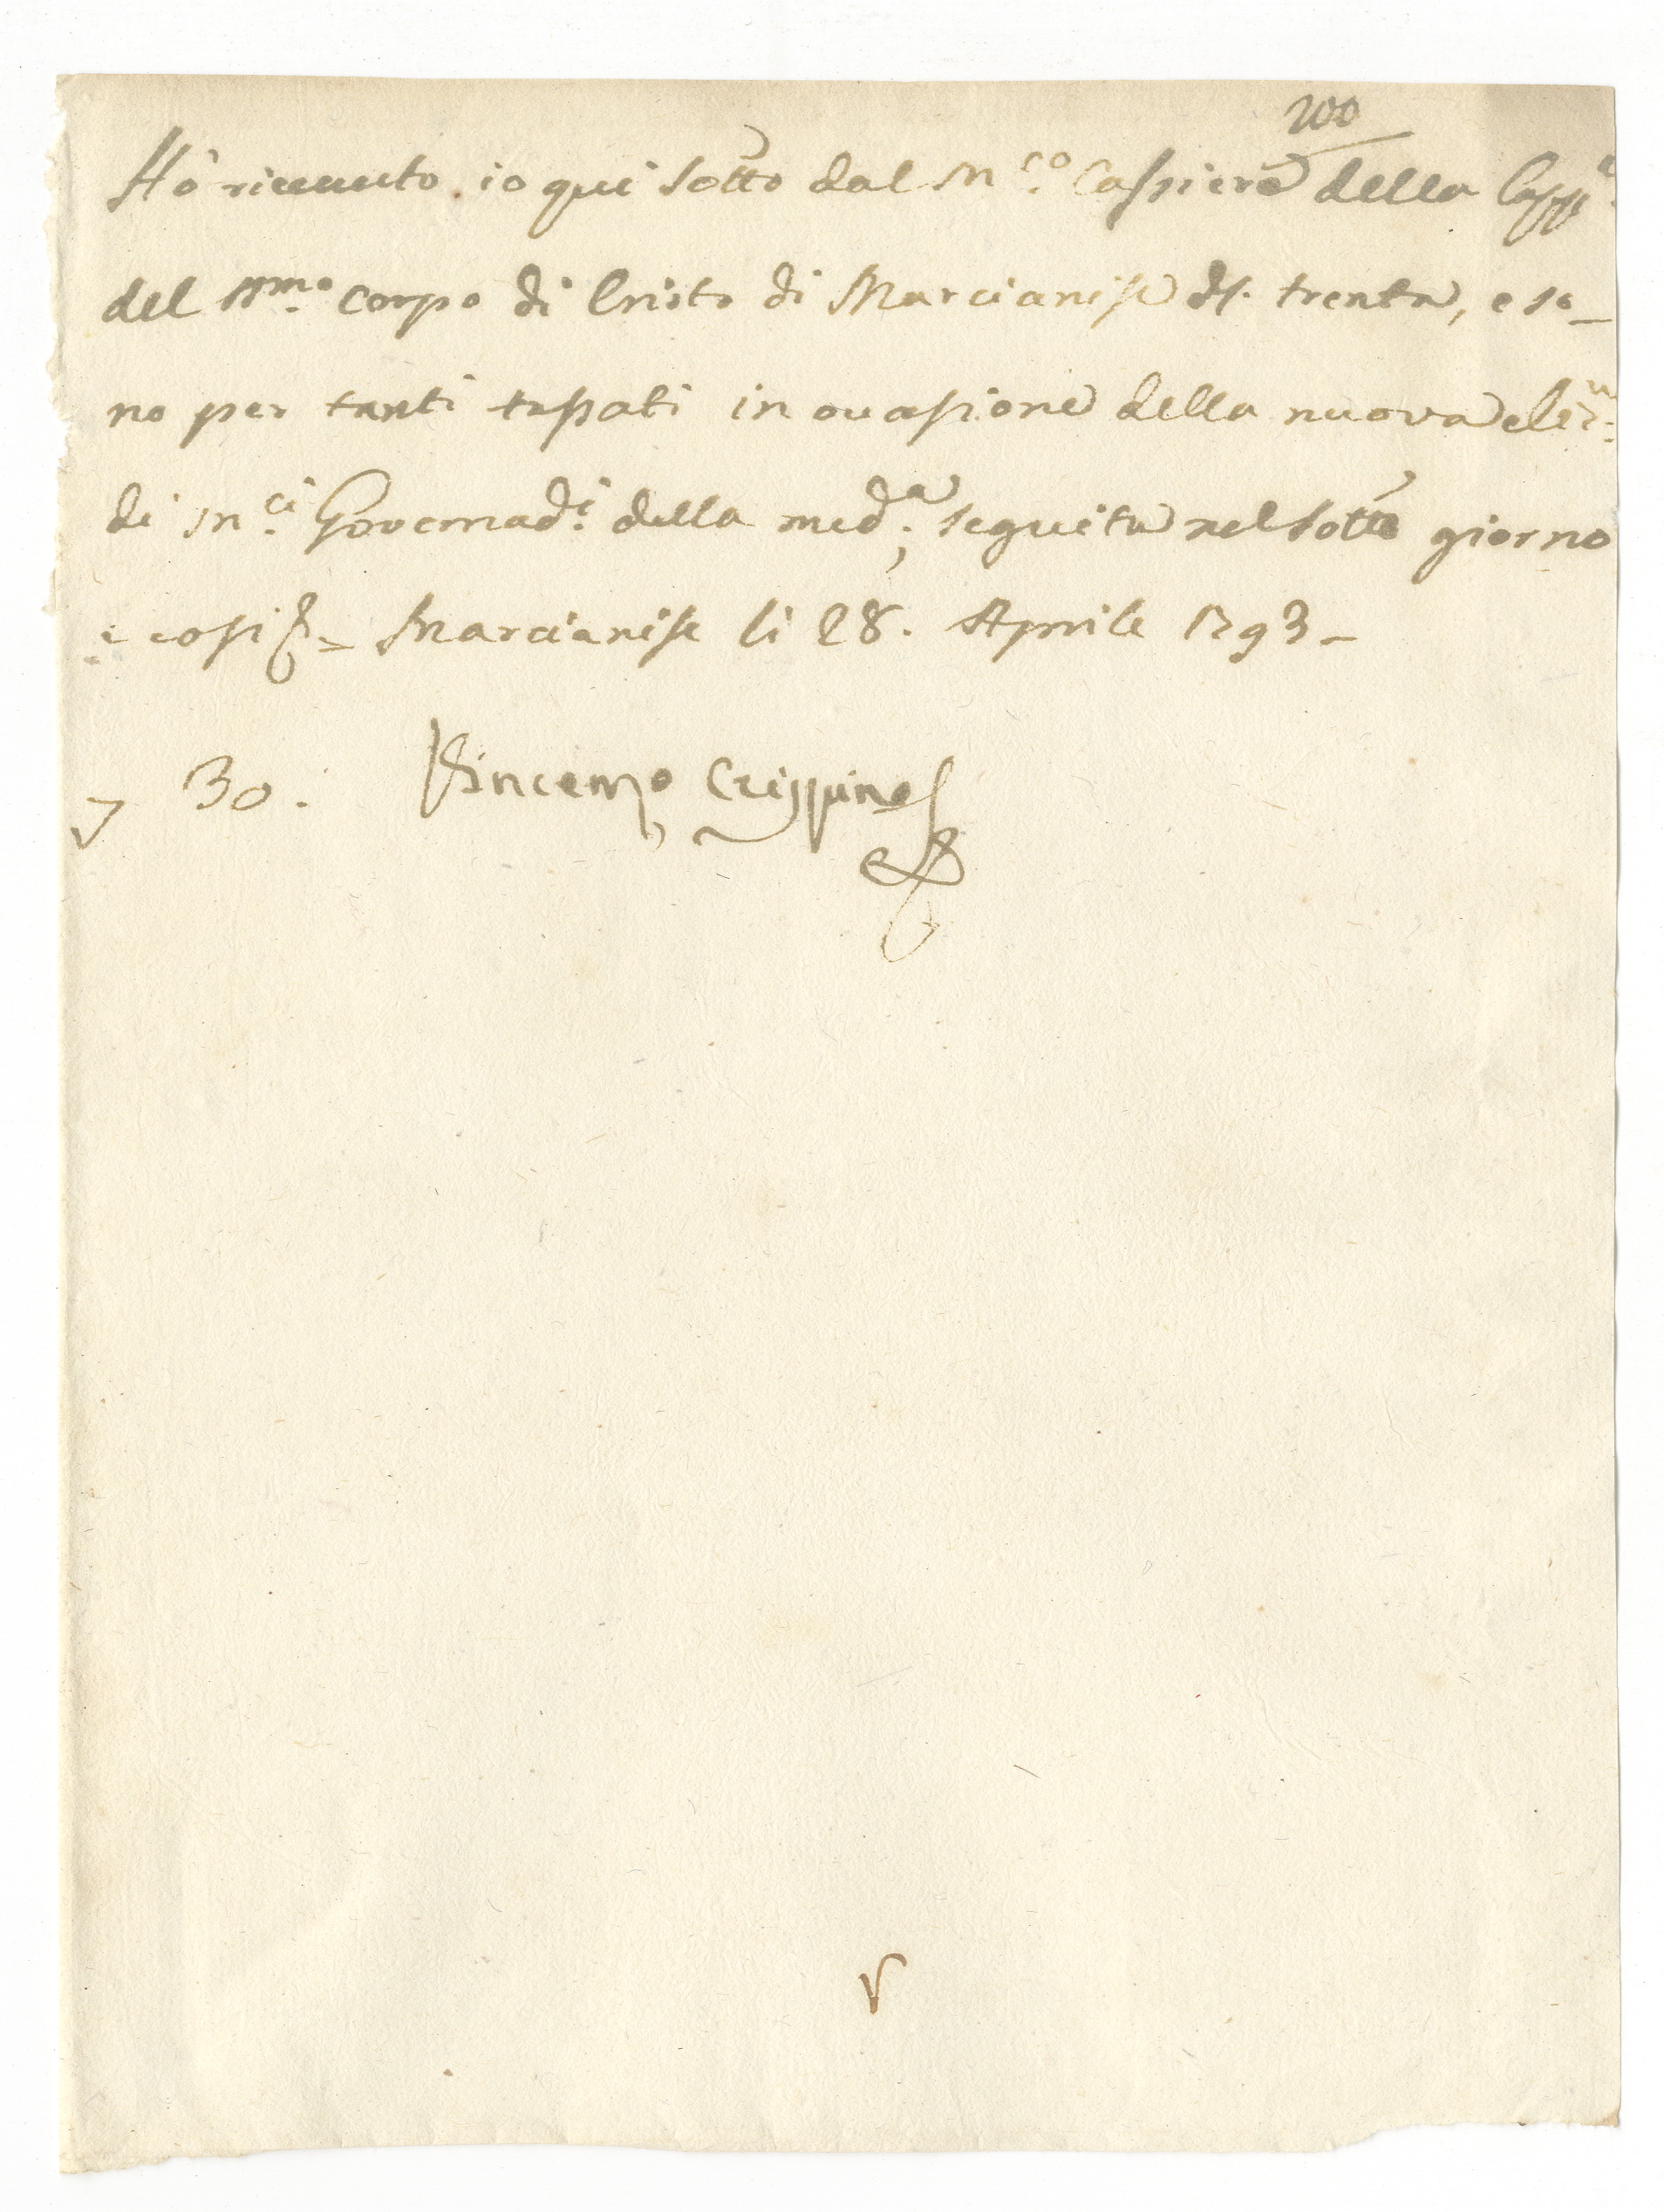 200
Hò riceuuto io qui sotto dal M.co Cassiere della Capp.a
del SS.mo Corpo di Cristo di Marcianise d.i trenta, e so_
no per tanti tassati in occasione della nuova elez.n
di M.ci Governad.i della med.a; seguita nel sotto giorno
e cosi Marcianise li 28. Aprile 1793_
30. Vincenzo Crispino